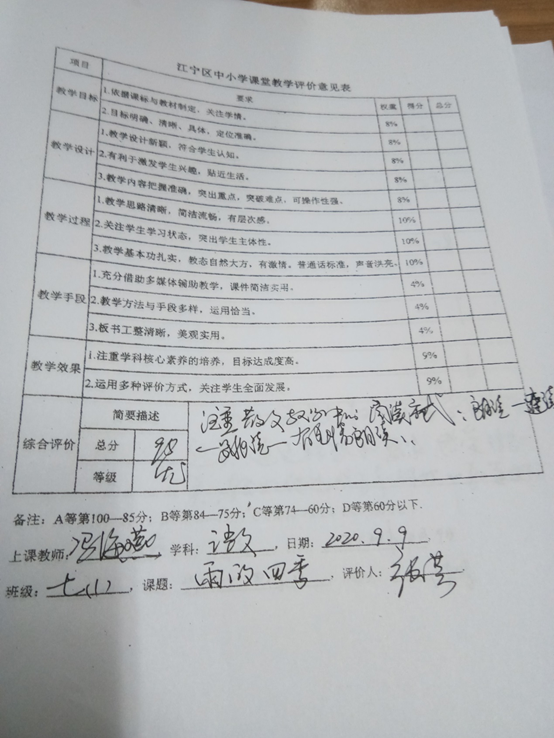 江宁区中小学课堂教学评价意见表
项目 要求 权重 得分 总分
教学目标 1.依据课标与教材制定、关注学情。 8%
2.目标明确、清晰、具体、定位准确。 8%
教学设计 1.教学设计新颖，符合学生认知。 8%
2.有利于激发学生兴趣，贴近生活。 8%
3.教学内容把握准确，突出重点，突破难点，可操作性强。 8%
教学过程 1.教学思路清晰，简洁流畅，有层次感。 10%
2.关注学生学习状态，突出学生主体性。 10%
3.教学基本功扎实，教态自然大方，有激情。普通话标准，声音洪亮。 10%
教学手段 1.充分借助多媒体辅助教学，课件简洁实用。 4%
2.教学方法与手段多样，运用恰当。 4%
3.板书工整清晰，美观实用。 4%
教学效果 1.注重学科核心素养的培养，目标达成度高。 9%
2.运用多种评价方式，关注学生全面发展。 9%
综合评价 简要描述 注重散文教学
总分 95
等级 优
备注：A等第100—85分；B等第84—75分；C等第74—60分；D等第60分以下.
上课教师： 学科：语文 日期：2020.9.9
班级：七(1) ，课题：雨的四季 ，评价人：张洪